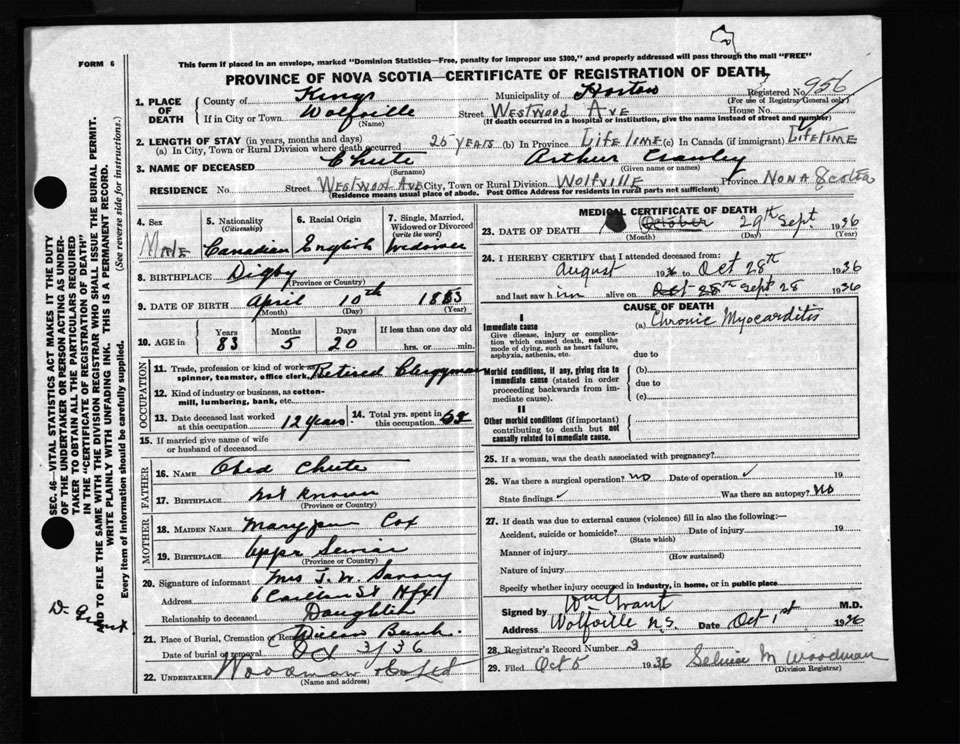 FORM 6
This form if placed in an envelope, marked "Dominion Statistics—Free, penalty for improper use $300," and properly addressed will pass through the mail "FREE"
PROVINCE OF NOVA SCOTIA—CERTIFICATE OF REGISTRATION OF DEATH
Registered No. 956
(For use of Registrar General only)
1. PLACE OF DEATH
County of Kings Municipality of Horton
If in City or Town Wolfville Street Westwood Ave House No.
(Name) (If death occurred in a hospital or institution, give the name instead of street and number)
2. LENGTH OF STAY (in years, months and days)
(a) In City, Town or Rural Division where death occurred 25 years (b) In Province Life time (c) In Canada (if immigrant) Lifetime
3. NAME OF DECEASED Chute Arthur Crawley
(Surname) (Given name or names)
RESIDENCE No. Street Westwood Ave City, Town or Rural Division Wolfville Province Nova Scotia
(Residence means usual place of abode. Post Office Address for residents in rural parts not sufficient)
4. Sex Male
5. Nationality (Citizenship) Canadian
6. Racial Origin English
7. Single, Married, Widowed or Divorced (write the word) Widower
8. BIRTHPLACE Digby
(Province or Country)
9. DATE OF BIRTH April 10th 1853
(Month) (Day) (Year)
10. AGE in Years 83 Months 5 Days 20 If less than one day old hrs. or min.
OCCUPATION
11. Trade, profession or kind of work as spinner, teamster, office clerk, Retired Clergyman
12. Kind of industry or business, as cotton-mill, lumbering, bank, etc.
13. Date deceased last worked at this occupation 12 years
14. Total yrs. spent in this occupation
15. If married give name of wife or husband of deceased
FATHER
16. NAME Obed Chute
17. BIRTHPLACE not known
(Province or Country)
MOTHER
18. MAIDEN NAME Mary Jane Cox
19. BIRTHPLACE Upper
(Province or Country)
20. Signature of informant Mrs J. W.
Address Carleton St Hfx
Relationship to deceased Daughter
21. Place of Burial, Cremation or
Date of burial or removal Oct 3/36
22. UNDERTAKER Woodman
(Name and address)
MEDICAL CERTIFICATE OF DEATH
23. DATE OF DEATH October 29th Sept. 1936
(Month) (Day) (Year)
24. I HEREBY CERTIFY that I attended deceased from:
August 1936 to Oct 28th 1936
and last saw him alive on Oct 28th Sept 28 1936
CAUSE OF DEATH
I
Immediate cause
Give disease, injury or complication which caused death, not the mode of dying, such as heart failure, asphyxia, asthenia, etc.
(a) Chronic Myocarditis
due to
Morbid conditions, if any, giving rise to immediate cause (stated in order proceeding backwards from immediate cause).
(b)
due to
(c)
II
Other morbid conditions (if important) contributing to death but not causally related to immediate cause.
25. If a woman, was the death associated with pregnancy?
26. Was there a surgical operation? no Date of operation 19
State findings Was there an autopsy? No
27. If death was due to external causes (violence) fill in also the following:—
Accident, suicide or homicide? Date of injury 19
(State which)
Manner of injury
(How sustained)
Nature of injury
Specify whether injury occurred in industry, in home, or in public place
Signed by Wm Grant M.D.
Address Wolfville N.S. Date Oct 1st 1936
28. Registrar's Record Number 3
29. Filed Oct 5 1936 M Woodman
(Division Registrar)
SEC. 46—VITAL STATISTICS ACT MAKES IT THE DUTY
OF THE UNDERTAKER OR PERSON ACTING AS UNDER-
TAKER TO OBTAIN ALL THE PARTICULARS REQUIRED
IN THE "CERTIFICATE OF REGISTRATION OF DEATH"
AND TO FILE THE SAME WITH THE DIVISION REGISTRAR WHO SHALL ISSUE THE BURIAL PERMIT.
WRITE PLAINLY WITH UNFADING INK. THIS IS A PERMANENT RECORD.
Every item of information should be carefully supplied. (See reverse side for instructions.)
Dr Grant